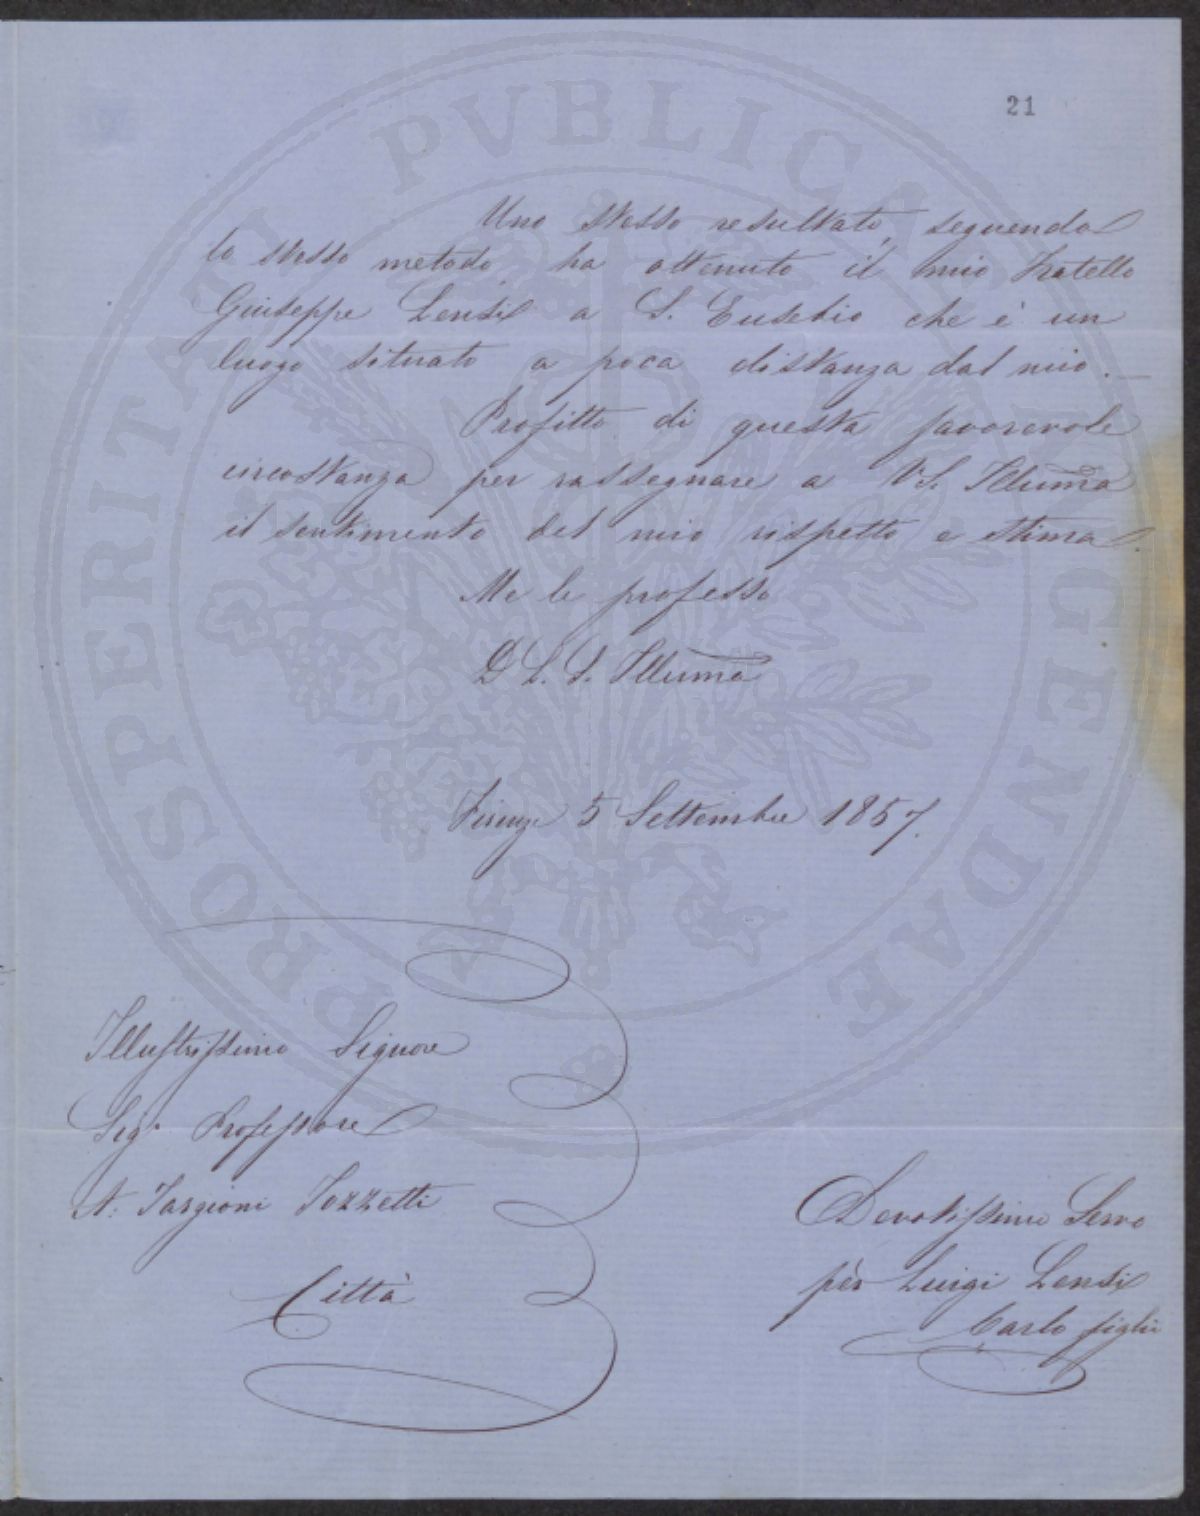 21
Uno stesso resultato, seguendo
lo stesso metodo, ha ottenuto il mio Fratello
Giuseppe Lensi a S. Eusebio che è un
luogo situato a poca distanza dal mio.
Profitto di questa favorevole
circostanza per rassegnare a V.S. Illuma
il sentimento del mio rispetto e stima.
Me le professo
D L. S. Illuma
Firenze 5 Settembre 1857.
Illustrissimo Signore
Sigr. Professore
A: Targioni Tozzetti
Città
Devotissimo Servo
per Luigi Lensi
Carlo figlio
PROSPERITATI PVBLICAE AVGENDAE